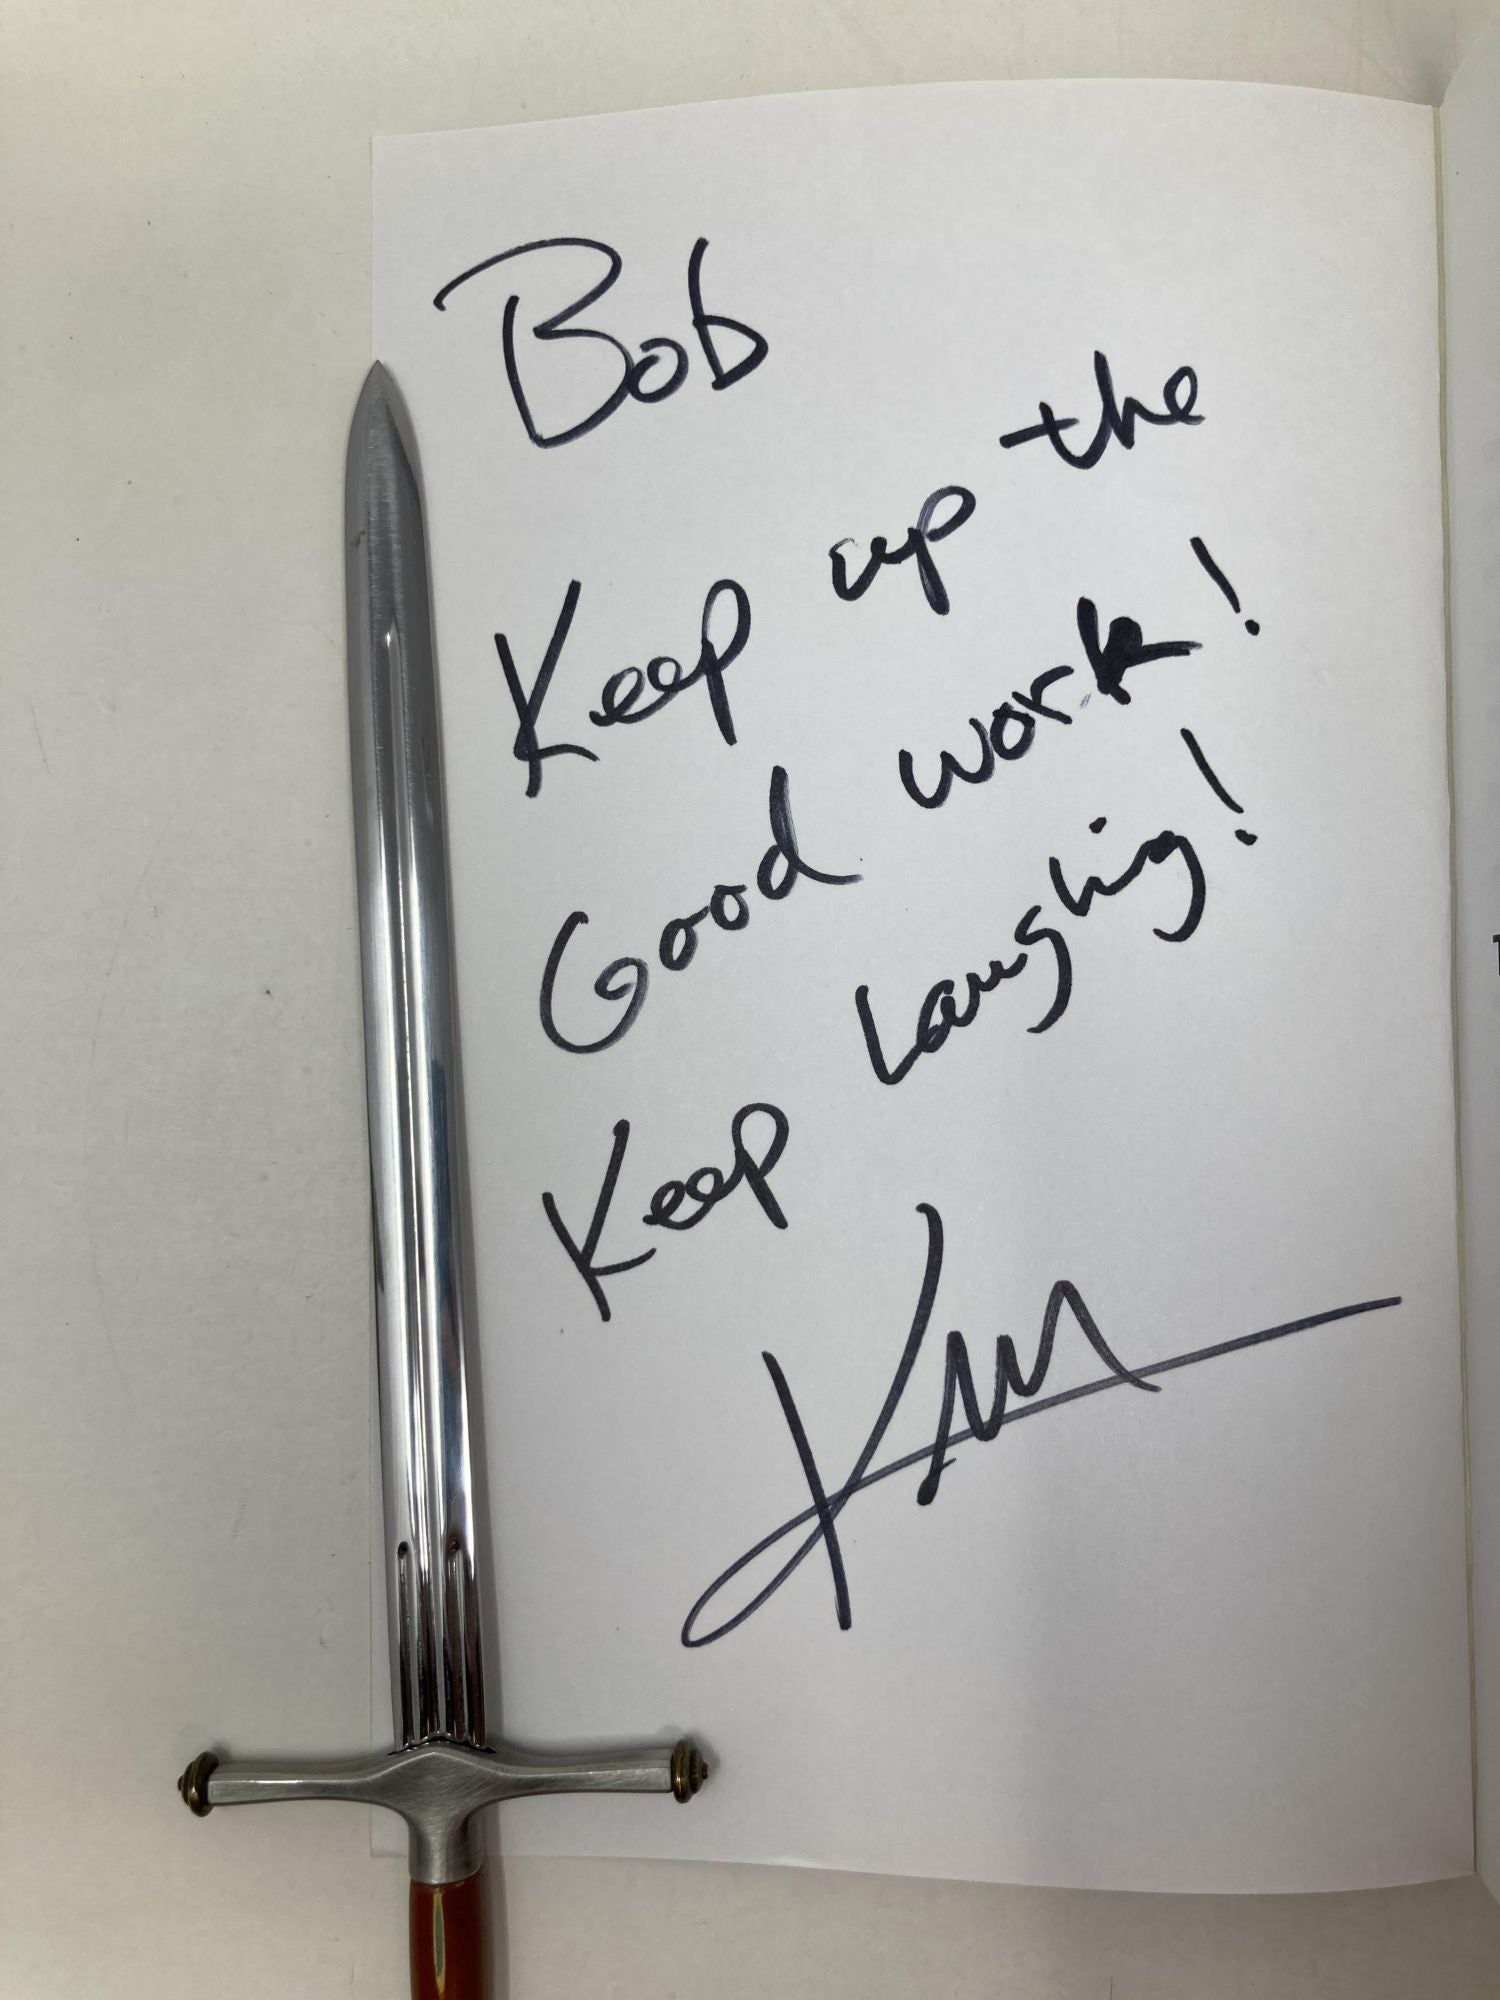 Bob
Keep up the
Good work!
Keep Laughing!